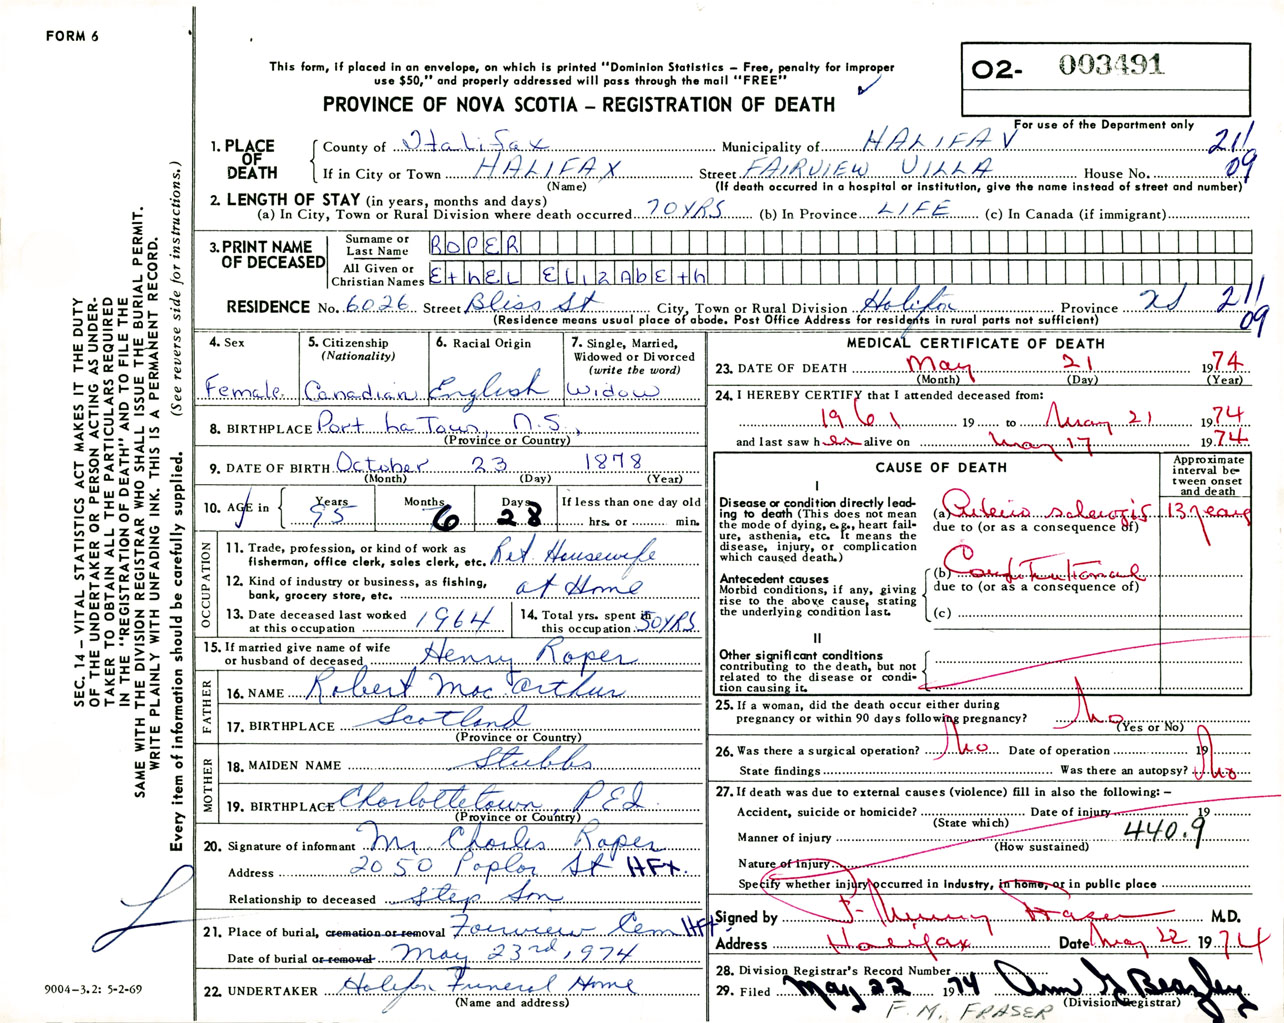 FORM 6
This form, if placed in an envelope, on which is printed "Dominion Statistics – Free, penalty for improper
use $50," and properly addressed will pass through the mail "FREE"
PROVINCE OF NOVA SCOTIA – REGISTRATION OF DEATH
O2- 003491
For use of the Department only
211
09
1. PLACE OF DEATH
County of Halifax Municipality of HALIFAX
If in City or Town HALIFAX Street FAIRVIEW VILLA House No.
(Name) (If death occurred in a hospital or institution, give the name instead of street and number)
2. LENGTH OF STAY (in years, months and days)
(a) In City, Town or Rural Division where death occurred 70 YRS (b) In Province LIFE (c) In Canada (if immigrant)
3. PRINT NAME OF DECEASED
Surname or Last Name ROPER
All Given or Christian Names EthEL ELIZAbEth
RESIDENCE No. 6026 Street Bliss St City, Town or Rural Division Halifax Province NS 211
09
(Residence means usual place of abode. Post Office Address for residents in rural parts not sufficient)
4. Sex Female
5. Citizenship (Nationality) Canadian
6. Racial Origin English
7. Single, Married, Widowed or Divorced (write the word) Widow
8. BIRTHPLACE Port La Tour, N.S.,
(Province or Country)
9. DATE OF BIRTH October 23 1878
(Month) (Day) (Year)
10. AGE in Years 95 Months 6 Days 28 If less than one day old
hrs. or min.
OCCUPATION
11. Trade, profession, or kind of work as
fisherman, office clerk, sales clerk, etc. Ret. Housewife
12. Kind of industry or business, as fishing,
bank, grocery store, etc. at Home
13. Date deceased last worked
at this occupation 1964
14. Total yrs. spent in
this occupation 50 YRS
15. If married give name of wife
or husband of deceased Henry Roper
FATHER
16. NAME Robert MacArthur
17. BIRTHPLACE Scotland
(Province or Country)
MOTHER
18. MAIDEN NAME Stubbs
19. BIRTHPLACE Charlottetown, P.E.I.
(Province or Country)
20. Signature of informant Mr Charles Roper
Address 2050 Poplar St HFX.
Relationship to deceased Step Son
21. Place of burial, cremation or removal Fairview Cem HFX
Date of burial or removal May 23rd, 1974
22. UNDERTAKER Halifax Funeral Home
(Name and address)
MEDICAL CERTIFICATE OF DEATH
23. DATE OF DEATH May 21 1974
(Month) (Day) (Year)
24. I HEREBY CERTIFY that I attended deceased from:
1961 19 to May 21 1974
and last saw her alive on May 17 1974
CAUSE OF DEATH
Approximate interval between onset and death
I
Disease or condition directly lead-
ing to death (This does not mean
the mode of dying, e.g., heart fail-
ure, asthenia, etc. It means the
disease, injury, or complication
which caused death.)
(a) Arterio sclerosis 13 years
due to (or as a consequence of)
Antecedent causes
Morbid conditions, if any, giving
rise to the above cause, stating
the underlying condition last.
(b) Constitutional
due to (or as a consequence of)
(c)
II
Other significant conditions
contributing to the death, but not
related to the disease or condi-
tion causing it.
25. If a woman, did the death occur either during
pregnancy or within 90 days following pregnancy? No
(Yes or No)
26. Was there a surgical operation? No Date of operation 19
State findings Was there an autopsy? No
27. If death was due to external causes (violence) fill in also the following: –
Accident, suicide or homicide? Date of injury 19
(State which)
Manner of injury 440.9
(How sustained)
Nature of Injury
Specify whether injury occurred in Industry, in home, or in public place
Signed by Fraser M.D.
Address Halifax Date May 22 1974
28. Division Registrar's Record Number
29. Filed May 22 1974 Ann G Beazley
(Division Registrar)
F. M. FRASER
SEC. 14 – VITAL STATISTICS ACT MAKES IT THE DUTY
OF THE UNDERTAKER OR PERSON ACTING AS UNDER-
TAKER TO OBTAIN ALL THE PARTICULARS REQUIRED
IN THE "REGISTRATION OF DEATH" AND TO FILE THE
SAME WITH THE DIVISION REGISTRAR WHO SHALL ISSUE THE BURIAL PERMIT.
WRITE PLAINLY WITH UNFADING INK. THIS IS A PERMANENT RECORD.
Every item of information should be carefully supplied. (See reverse side for instructions.)
9004-3.2: 5-2-69